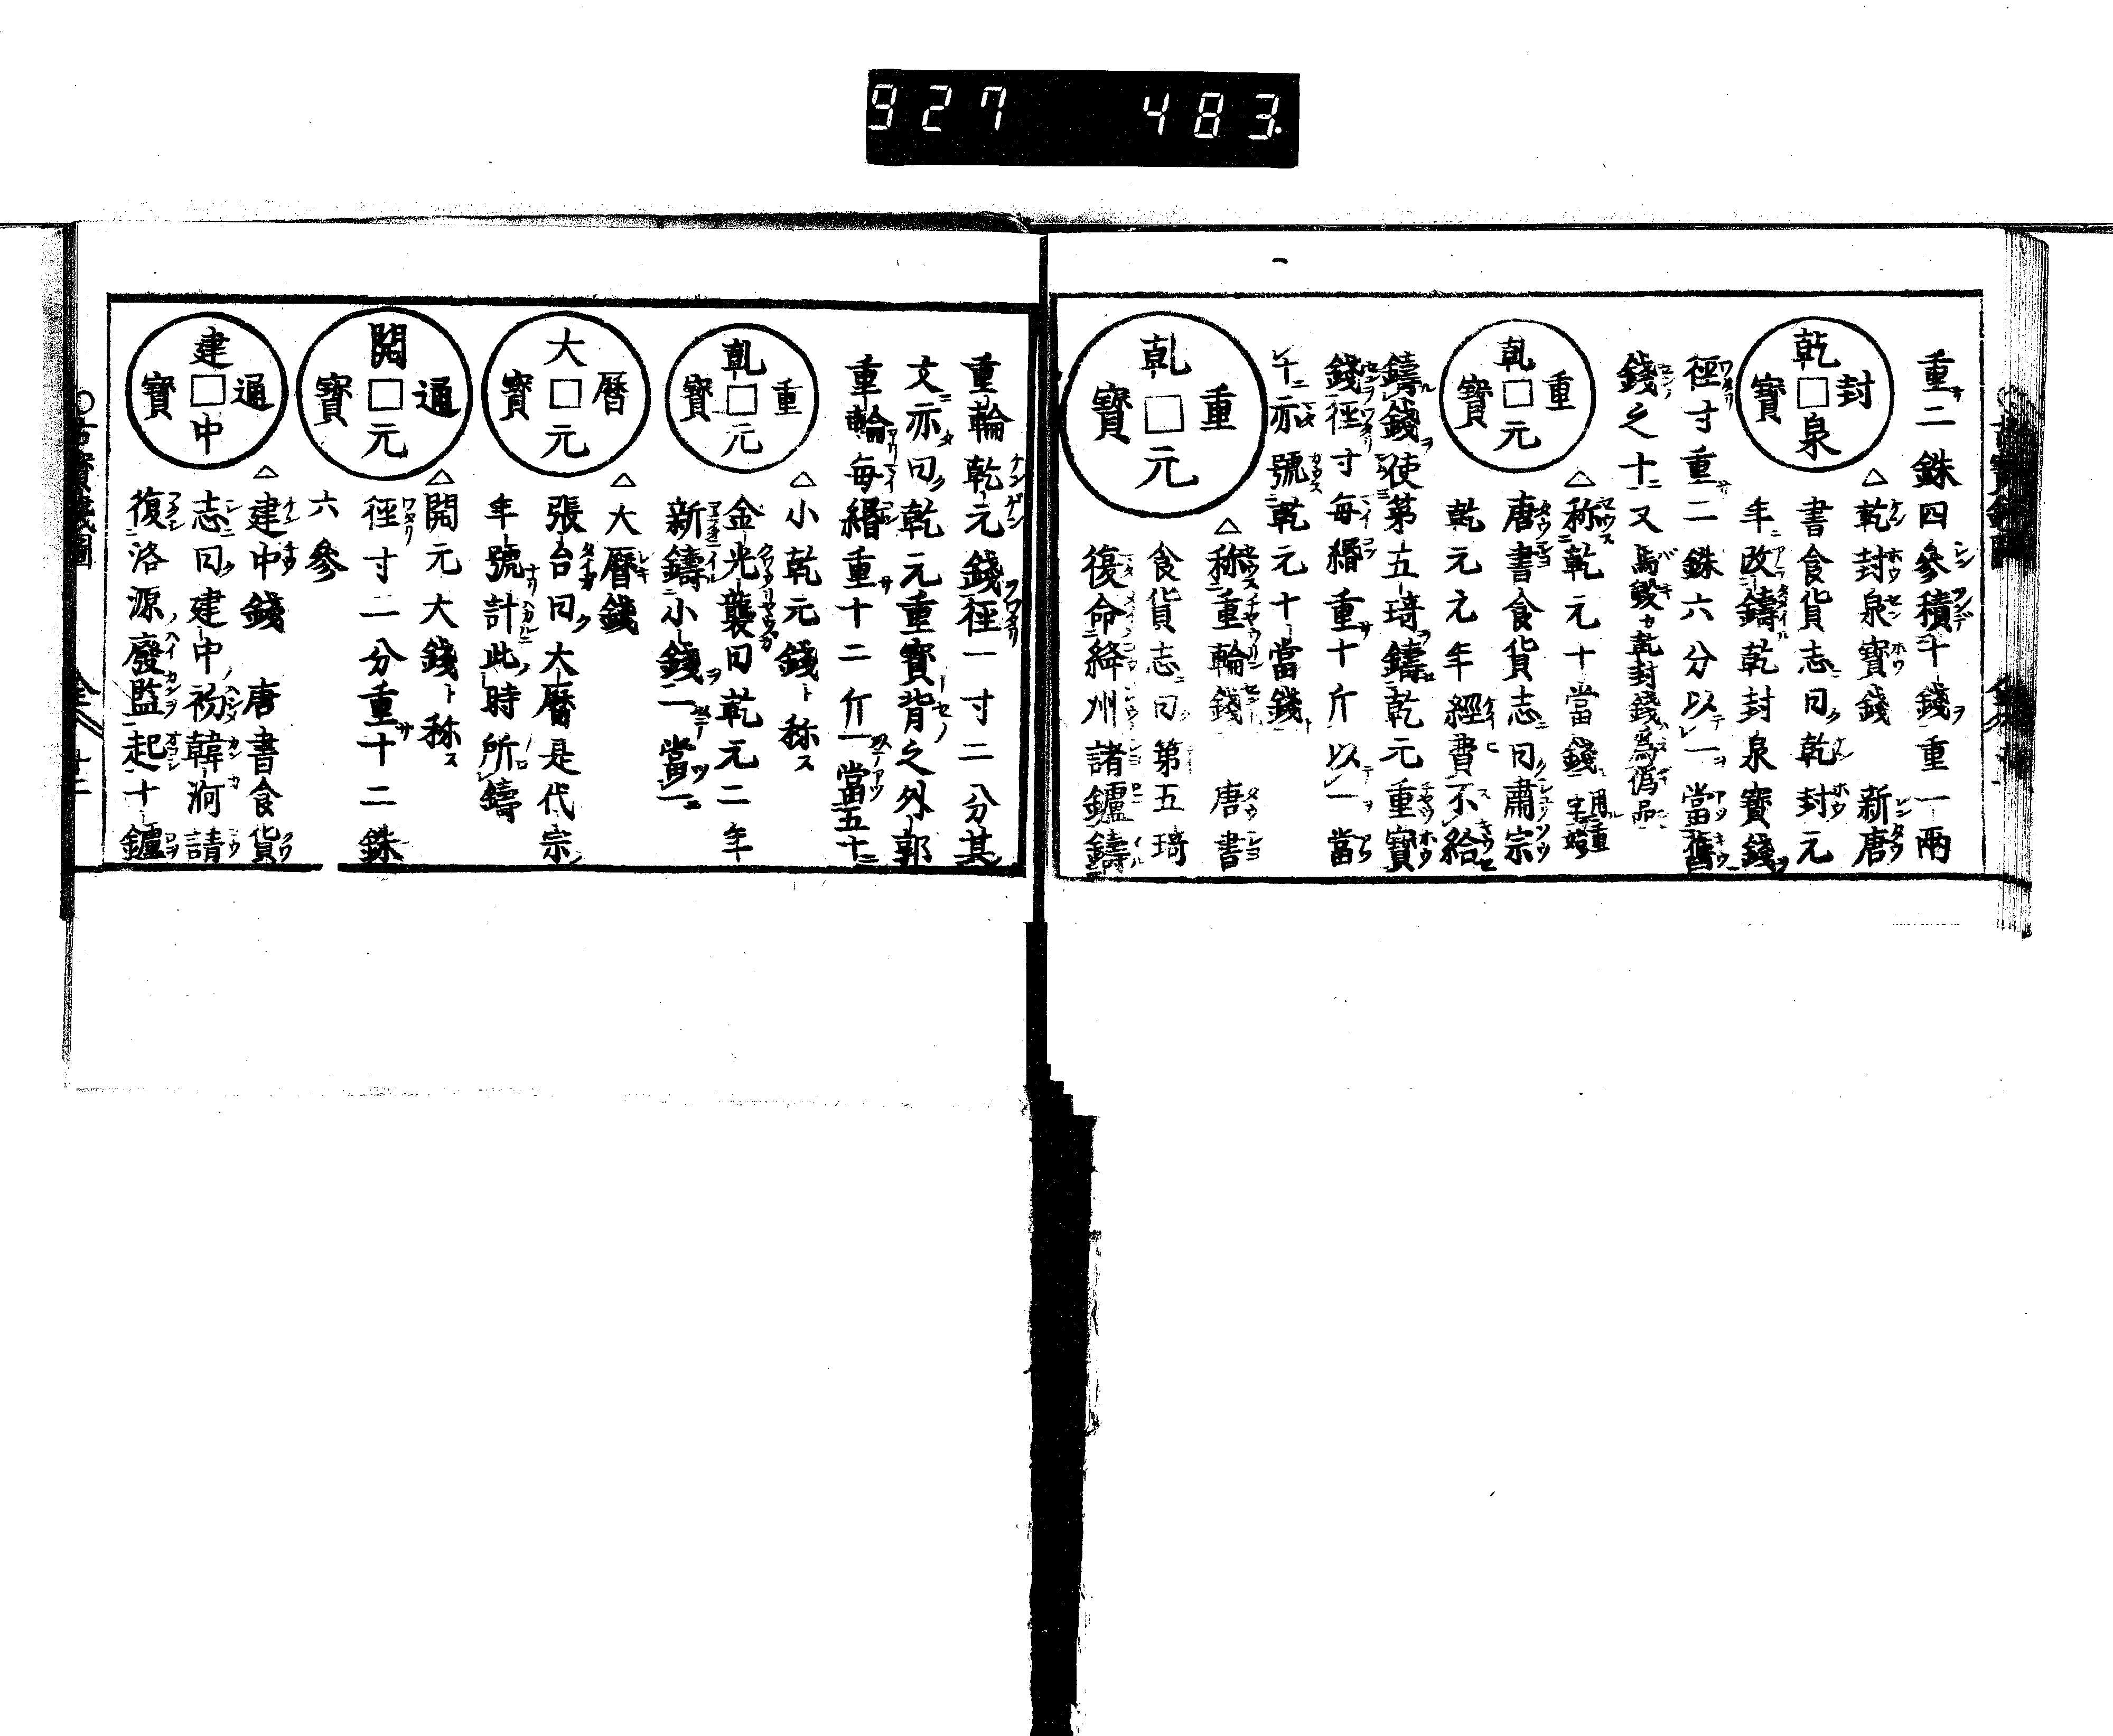 927 483
重二銖四參積十錢重一兩
乾封泉寶
△乾封泉寶錢 新唐
書食貨志曰乾封元
年改鑄乾封泉寶錢
徑寸重二銖六分以一當舊
錢之十又馬毀乾封錢爲僞品
乾重元寶
△称乾元十當錢
唐書食貨志曰肅宗
乾元元年經費不給
鑄錢使第五琦鑄乾元重寶
錢徑寸每緡重十斤以一當
十亦號乾元十當錢
乾重元寶
△称重輪錢 唐書
食貨志曰第五琦
復命絳州諸鑪鑄
重輪乾元錢徑一寸二分其
文亦曰乾元重寶背之外郭
重輪每緡重十二斤一當五十
乾重元寶
△小乾元錢ト称ス
金光襲曰乾元二年
新鑄小錢二當一
大曆元寶
△大曆錢
張台曰大曆是代宗
年號計此時所鑄
開通元寶
△開元大錢ト称ス
徑寸二分重十二銖
六參
建通中寶
△建中錢 唐書食貨
志曰建中初韓洄請
復洛源廢監起十鑪
○古寳錢圖 全 廿二